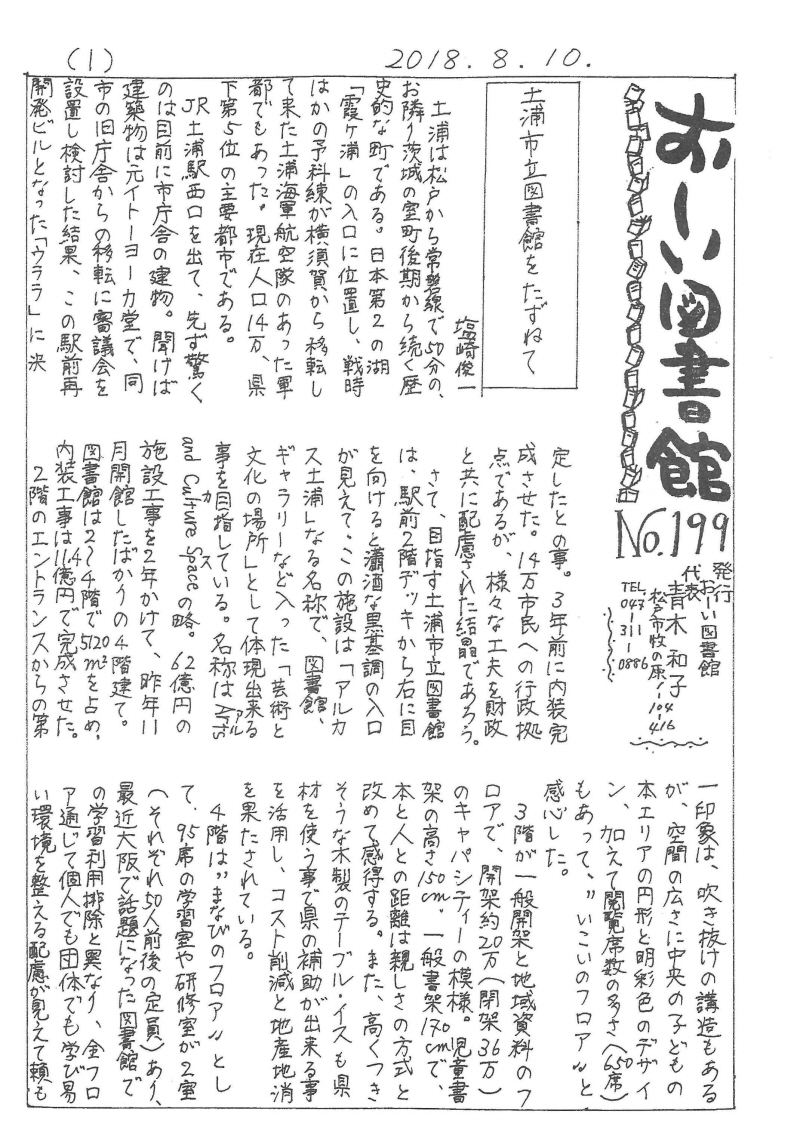 (1)
2018.8.10.
おーい図書館
No.199
発行 おーい図書館
代表 青木和子
松戸市牧の原1-104-416
TEL 047-311-0886
土浦市立図書館をたずねて
塩崎俊一
土浦は松戸から常磐線で50分の、
お隣り茨城の室町後期から続く歴
史的な町である。日本第2の湖
「霞ヶ浦」の入口に位置し、戦時
はかの予科練が横須賀から移転し
て来た土浦海軍航空隊のあった軍
都でもあった。現在人口14万、県
下第5位の主要都市である。
JR土浦駅西口を出て、先ず驚く
のは目前に市庁舎の建物。聞けば
建築物は元イトーヨーカ堂で、同
市の旧庁舎からの移転に審議会を
設置し検討した結果、この駅前再
開発ビルとなった「ウララ」に決
定したとの事。3年前に内装完
成させた。14万市民への行政拠
点であるが、様々な工夫を財政
と共に配慮された結晶であろう。
さて、目指す土浦市立図書館
は、駅前2階デッキから右に目
を向けると瀟洒な黒基調の入口
が見えて、この施設は「アルカ
ス土浦」なる名称で、図書館、
ギャラリーなど入った「芸術と
文化の場所」として体現出来る
事を目指している。名称はArts(アル)
and Culture(カ) Space(ス)の略。62億円の
施設工事を2年かけて、昨年11
月開館したばかりの4階建て。
図書館は2〜4階で5120㎡を占め、
内装工事は11.4億円で完成させた。
2階のエントランスからの第
一印象は、吹き抜けの講造もある
が、空間の広さに中央の子どもの
本エリアの円形と明彩色のデザイ
ン、加えて閲覧席数の多さ(650席)
もあって、〃いこいのフロア〃と
感心した。
3階が一般開架と地域資料のフ
ロアで、開架約20万(閉架36万)
のキャパシティーの模様。児童書
架の高さ150cm、一般書架170cmで、
本と人との距離は親しさの方式と
改めて感得する。また、高くつき
そうな木製のテーブル・イスも県
材を使う事で県の補助が出来る事
を活用し、コスト削減と地産地消
を果たされている。
4階は〃まなびのフロア〃とし
て、95席の学習室や研修室が2室
(それぞれ50人前後の定員)あり、
最近大阪で話題になった図書館で
の学習利用排除と異なり、全フロ
ア通じて個人でも団体でも学び易
い環境を整える配慮が見えて頼も